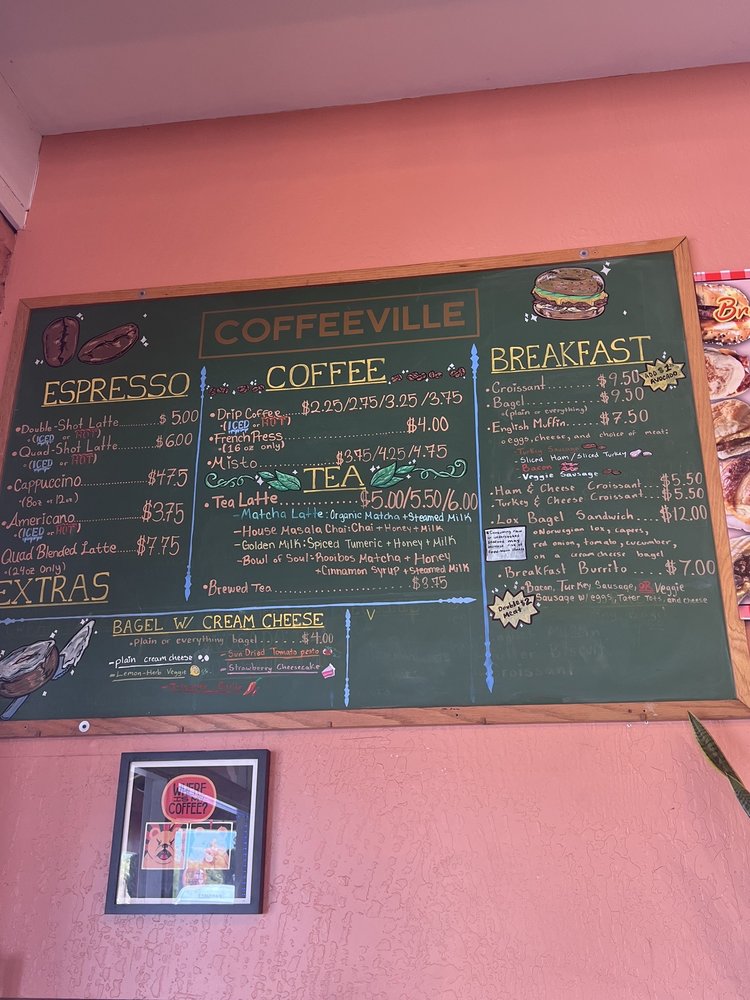 COFFEEVILLE
ESPRESSO
•Double-Shot Latte......$5.00
(ICED or HOT)
•Quad-Shot Latte.......$6.00
(ICED or HOT)
•Cappuccino..........$4.75
(8oz or 12oz)
•Americano..........$3.75
(ICED or HOT)
Quad Blended Latte...$7.75
(24oz Only)
EXTRAS
COFFEE
•Drip Coffee...$2.25/2.75/3.25/3.75
(ICED or HOT)
•French Press..........$4.00
(16 oz only)
•Misto..........$3.75/4.25/4.75
TEA
•Tea Latte..........$5.00/5.50/6.00
-Matcha Latte: Organic Matcha + Steamed Milk
-House Masala Chai: Chai + Honey + Milk
-Golden Milk: Spiced Tumeric + Honey + Milk
-Bowl of Soul: Rooibos Matcha + Honey
+ Cinnamon Syrup + Steamed Milk
•Brewed Tea..........$3.75
BREAKFAST
•Croissant.......$9.50
ADD $1 AVOCADO
•Bagel..........$9.50
(plain or everything)
•English Muffin...$7.50
eggs, cheese, and choice of meat:
-Turkey Sausage
-Sliced Ham/Sliced Turkey
-Bacon
-Veggie Sausage
•Ham & Cheese Croissant...$5.50
•Turkey & Cheese Croissant...$5.50
•Lox Bagel Sandwich...$12.00
Norwegian lox, capers,
red onion, tomato, cucumber,
on a creamcheese bagel
•Breakfast Burrito...$7.00
Bacon, Turkey Sausage, OR Veggie
Sausage w/ eggs, Tater Tots, and cheese
Double $2
Meat
BAGEL W/ CREAM CHEESE
•Plain or everything bagel.......$4.00
-plain cream cheese
-Sun Dried Tomato pesto
-Lemon-Herb Veggie
-Strawberry Cheesecake
V
Br
WHERE
IS MY
COFFEE?